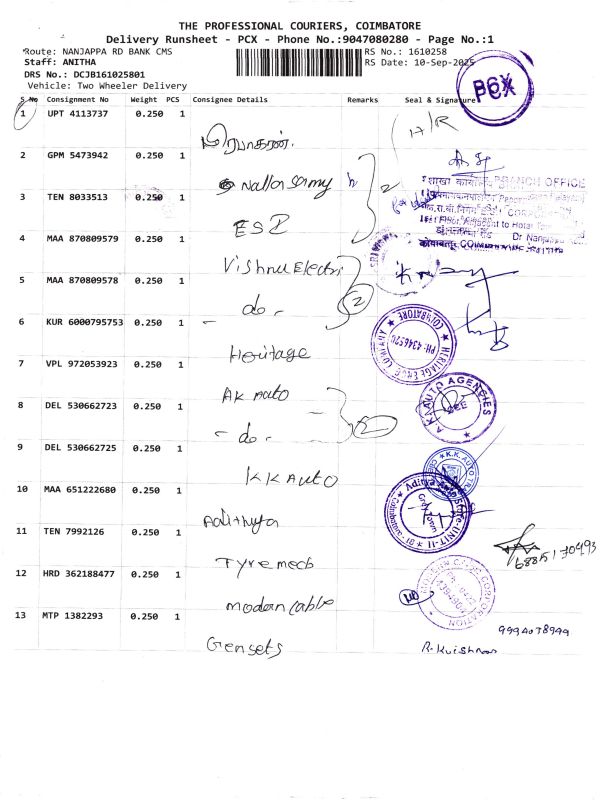 THE PROFESSIONAL COURIERS, COIMBATORE
Delivery Runsheet - PCX - Phone No.:9047080280 - Page No.:1
Route: NANJAPPA RD BANK CMS
RS No.: 1610258
Staff: ANITHA
RS Date: 10-Sep-2025
DRS No.: DCJB161025801
Vehicle: Two Wheeler Delivery
S No Consignment No Weight PCS Consignee Details Remarks Seal & Signature
1 UPT 4113737 0.250 1
H/R
2 GPM 5473942 0.250 1
Nallasamy
BRANCH OFFICE
3 TEN 8033513 0.250 1
ESI
4 MAA 870809579 0.250 1
Vishnu Electri
2
5 MAA 870809578 0.250 1
- do -
6 KUR 6000795753 1
Heritage
COIMBATORE
7 VPL 972053923 0.250 1
AK Auto
A.K.AUTO AGENCIES
8 DEL 530662723 0.250 1
- do -
2
9 DEL 530662725 0.250 1
KK Auto
K.K. AUTO
10 MAA 651222680 0.250 1
Adithya
UNIT-II
11 TEN 7992126 0.250 1
Tyre mech
12 HRD 362188477 0.250 1
modern cable
CORPORATION
13 MTP 1382293 0.250 1
9994078999
Gensets
R. Krishnan